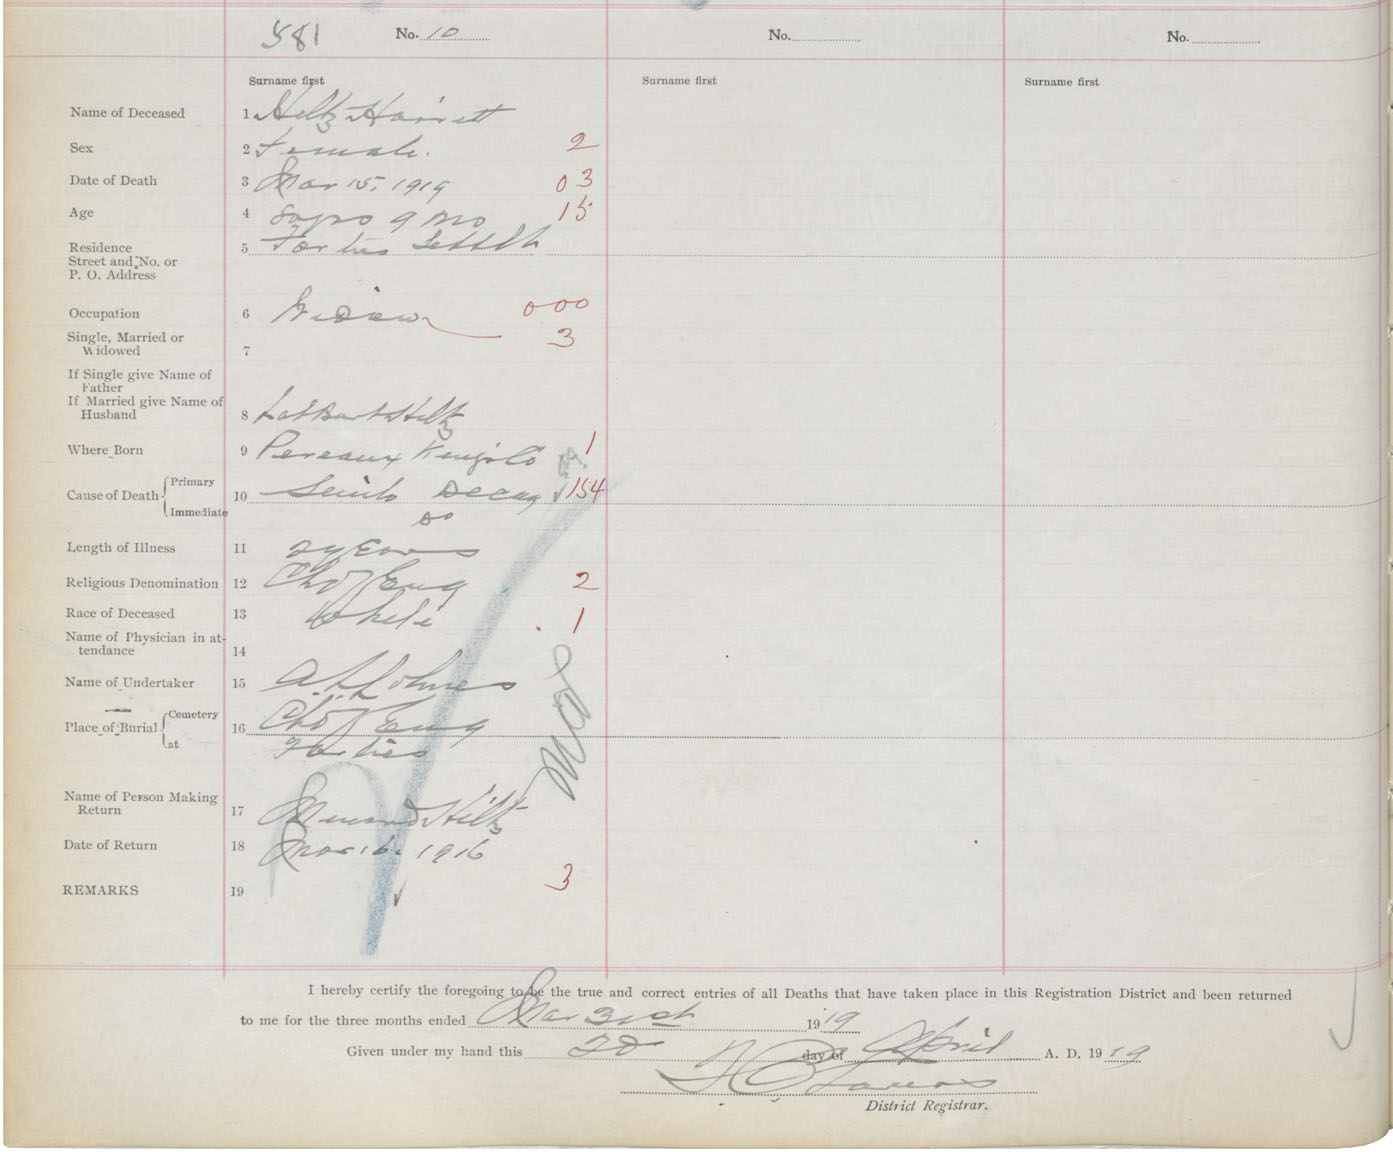 581 No. 10 No. No.
Surname first Surname first Surname first
Name of Deceased 1 Hiltz Harriett
Sex 2 Female. 2
Date of Death 3 Mar 15, 1919 03
Age 4 80 yrs 9 mo 15
Residence
Street and No. or
P. O. Address 5 Forties Settlt
Occupation 6 Widow 000
Single, Married or
Widowed 7 3
If Single give Name of
Father
If Married give Name of
Husband 8 Hiltz
Where Born 9 Pereaux Kings Co 1
Cause of Death Primary 10 Senile Decay 154
Immediate Do
Length of Illness 11 2 years
Religious Denomination 12 Ch of Eng 2
Race of Deceased 13 White 1
Name of Physician in at-
tendance 14
Name of Undertaker 15
Place of Burial Cemetery 16 Ch of Eng
at Forties
Name of Person Making
Return 17 Hiltz
Date of Return 18 Mar 16. 1916
REMARKS 19 3
I hereby certify the foregoing to be the true and correct entries of all Deaths that have taken place in this Registration District and been returned
to me for the three months ended Mar 31st 1919
Given under my hand this day of April A. D. 1919
District Registrar.